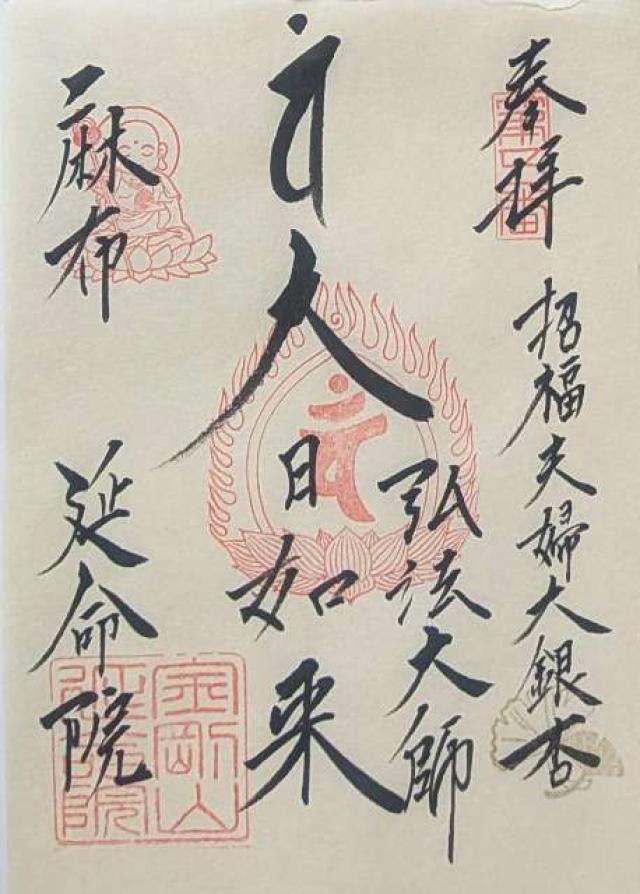 奉拝
招福夫婦大銀杏
弘法大師
大日如来
麻布
延命院
金剛山
延命院